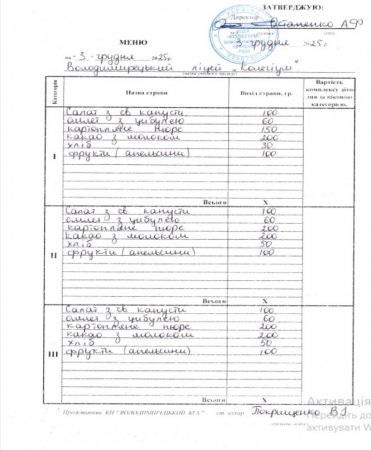 ЗАТВЕРДЖУЮ:
Директор Остапенко А Ф
3 грудня 2025 р
МЕНЮ
на - 3 - грудня 2025 г.
Володимирецький ліцей „Колегіум"
Категорія Назва страви Вихід страви, гр. Вартість комплексу для за віковою категорією.
I
Салат з св капусти 100
омлет з цибулею 60
картопляне пюре 150
какао з молоком 200
хліб 30
фрукти (апельсини) 100
Всього X
II
Салат з св капусти 100
омлет з цибулею 60
картопляне пюре 200
какао з молоком 200
хліб 50
фрукти (апельсини) 100
Всього X
III
Салат з св капусти 100
омлет з цибулею 60
картопляне пюре 200
какао з молоком 200
хліб 50
фрукти (апельсини) 100
Всього X
КП "ВОЛОДИМИРЕЦЬКИЙ КГХ" кухар
Активація
Перейдіть до
активувати W